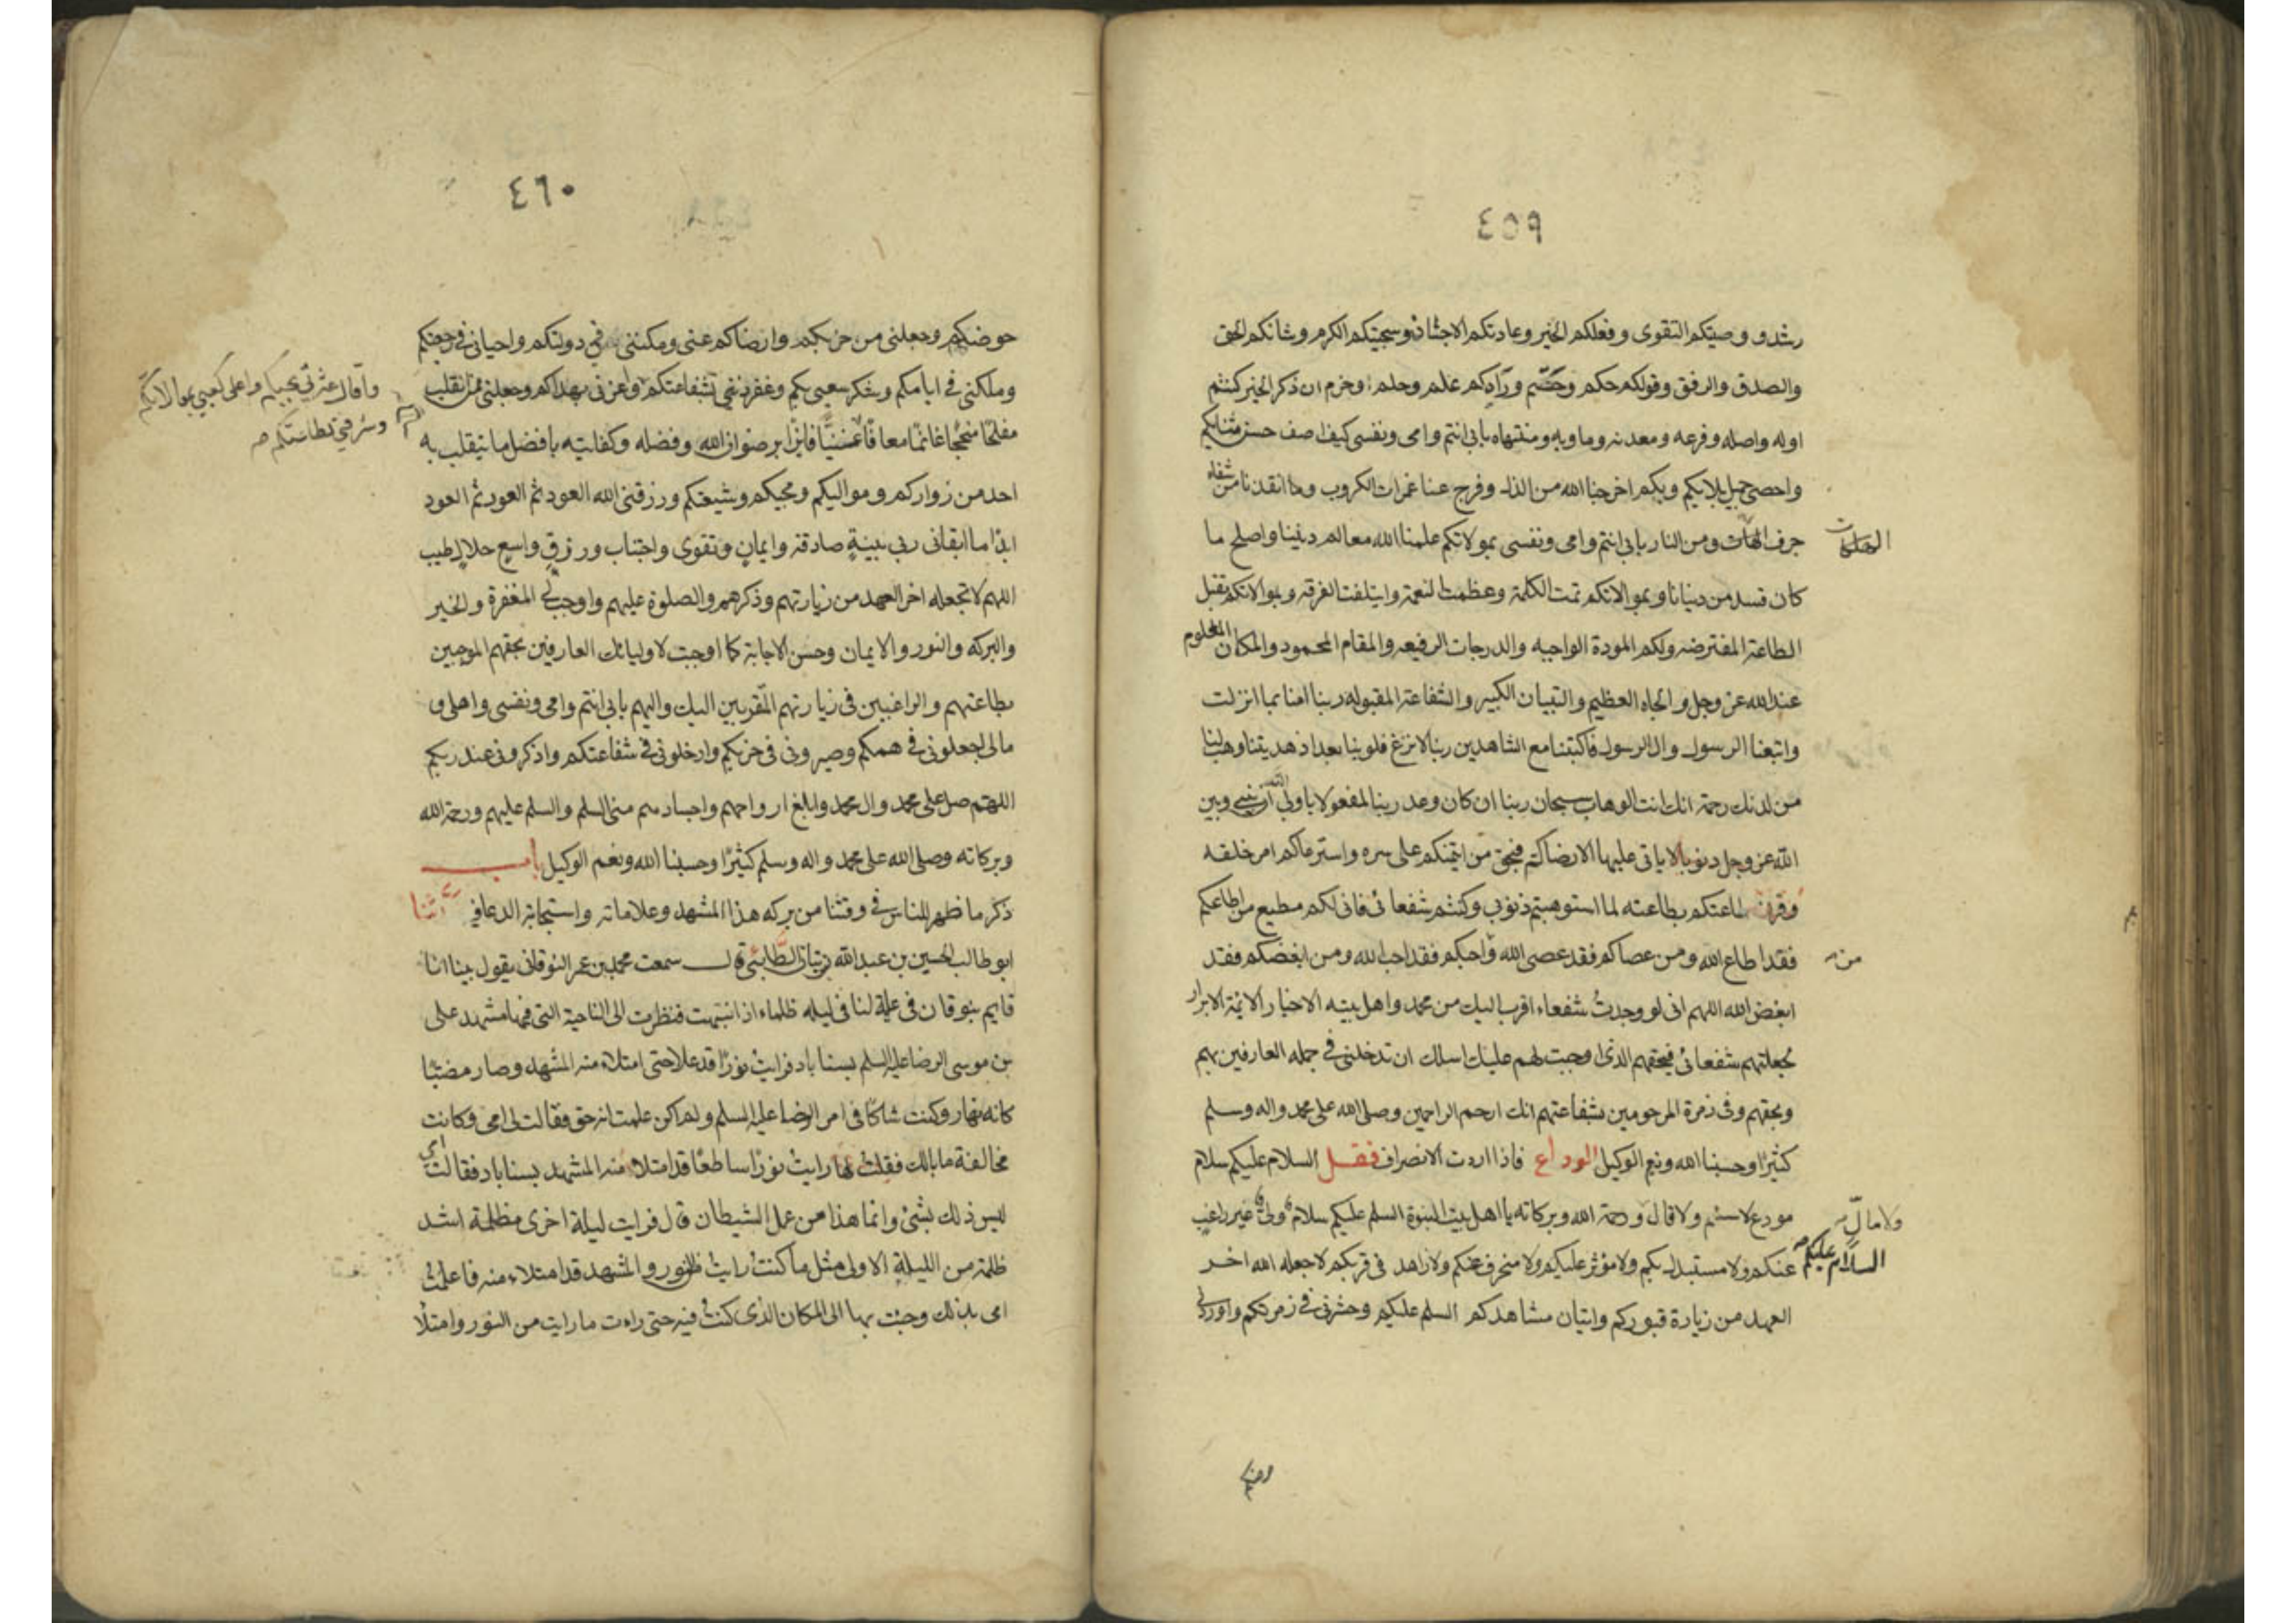 ٤٥٩
رشد و وصيتكم التقوى وفعلكم الخير وعادتكم الاحسان وسجيتكم الكرم وشانكم الحق
والصدق والرفق وقولكم حكم وحتم ورأيكم علم وحلم وحزم ان ذكر الخير كنتم
اوله واصله وفرعه ومعدنه وماويه ومنتهاه بابى انتم وامى ونفسى كيف اصف حسن ثنائكم
واحصى جميل بلائكم وبكم اخرجنا الله من الذل وفرج عنا غمرات الكروب وانقذنا من شفاء
جرف الهلكات ومن النار بابى انتم وامى ونفسى بموالاتكم علمنا الله معالم ديننا واصلح ما
الهلكات
كان فسد من دنيانا وبموالاتكم تمت الكلمة وعظمت النعمة وايتلفت الفرقة وبموالاتكم تقبل
الطاعة المفترضه ولكم المودة الواجبه والدرجات الرفيعه والمقام المحمود والمكان المعلوم
عند الله عز وجل والجاه العظيم والتبيان الكبير والشفاعة المقبوله ربنا امنا بما انزلت
واتبعنا الرسول وال الرسول فاكتبنا مع الشاهدين ربنا لا تزغ قلوبنا بعد اذ هديتنا وهب لنا
من لدنك رحمة انك انت الوهاب سبحان ربنا ان كان وعد ربنا لمفعولا يا ولى الله ان بينى وبين
الله عز وجل ذنوبا لا ياتى عليها الا رضاكم فبحق من ايتمنكم على سره واسترعاكم امر خلقه
وقرن طاعتكم بطاعته لما استوهبتم ذنوبى وكنتم شفعائى فانى لكم مطيع من اطاعكم
فقد اطاع الله ومن عصاكم فقد عصى الله واحبكم فقد احب الله ومن ابغضكم فقد
من
ابغض الله اللهم انى لو وجدت شفعاء اقرب اليك من محمد واهل بيته الاخيار الائمة الابرار
لجعلتهم شفعائى فبحقهم الذى اوجبت لهم عليك اسلك ان تدخلنى فى جمله العارفين بهم
وبحقهم وفى زمرة المرحومين بشفاعتهم انك ارحم الراحمين وصلى الله على محمد واله وسلم
كثيرا وحسبنا الله ونعم الوكيل الوداع فاذا اردت الانصراف فقل السلام عليكم سلام
مودع لا سئم ولا قال ورحمة الله وبركاته يا اهل بيت النبوة السلم عليكم سلام ولى غير راغب
ولا مال
السلام عليكم
عنكم ولا مستبدل بكم ولا مؤثر عليكم ولا منحرف عنكم ولا زاهد فى قربكم لا جعله الله اخر
العهد من زيارة قبوركم واتيان مشاهدكم السلم عليكم وحشرنى فى زمرتكم واوردنى
٤٦٠
حوضكم وجعلنى من حزبكم وارضاكم عنى ومكننى فى دولتكم واحيانى فى رجعتكم
وملكنى فى ايامكم وشكر سعيى بكم وغفر ذنبى بشفاعتكم واعزنى بهداكم وجعلنى ممن انقلب
واقال عثرتى بمحبتكم واعلى كعبى بموالاتكم
وشرفنى بطاعتكم
مفلحا منجحا غانما معافا غنيا فائزا برضوان الله وفضله وكفايته بافضل ما ينقلب به
احد من زواركم ومواليكم ومحبيكم وشيعتكم ورزقنى الله العود ثم العود ثم العود
ابدا ما ابقانى ربى بنية صادقة وايمان وتقوى واخبات ورزق واسع حلال طيب
اللهم لا تجعله اخر العهد من زيارتهم وذكرهم والصلوة عليهم واوجب لى المغفرة والخير
والبركه والنور والايمان وحسن الاجابة كما اوجبت لاوليائك العارفين بحقهم الموجبين
بطاعتهم والراغبين فى زيارتهم المقربين اليك واليهم بابى انتم وامى ونفسى واهلى و
مالى اجعلونى فى همكم وصيرونى فى حزبكم وادخلونى فى شفاعتكم واذكرونى عند ربكم
اللهم صل على محمد وال محمد وابلغ ارواحهم واجسادهم منى السلم والسلم عليهم ورحمة الله
وبركاته وصلى الله على محمد واله وسلم كثيرا وحسبنا الله ونعم الوكيل باب
ذكر ما ظهر للناس فى وقتنا من بركه هذا المشهد وعلاماته واستجابة الدعا فيه حدثنا
ابو طالب الحسين بن عبد الله بن بنان الطائى قال سمعت محمد بن عمر النوقانى يقول بينا انا
قايم بنوقان فى علية لنا فى ليله ظلماء اذ انتبهت فنظرت الى الناحية التى فيها مشهد على
بن موسى الرضا عليه السلم بسناباد فرايت نورا قد علا حتى امتلاء منه المشهد وصار مضيئا
كانه نهار وكنت شاكا فى امر الرضا عليه السلم ولم اكن علمت انه حق فقالت لى امى وكانت
مخالفة ما بالك فقلت لها رايت نورا ساطعا قد امتلاء منه المشهد بسناباد فقالت امى
ليس ذلك بشئ وانما هذا من عمل الشيطان قال فرايت ليلة اخرى مظلمة اشد
ظلمة من الليلة الاولى مثل ما كنت رايت من النور والمشهد قد امتلاء منه فاعلمت
امى بذلك وجئت بها الى المكان الذى كنت فيه حتى رات ما رايت من النور وامتلا